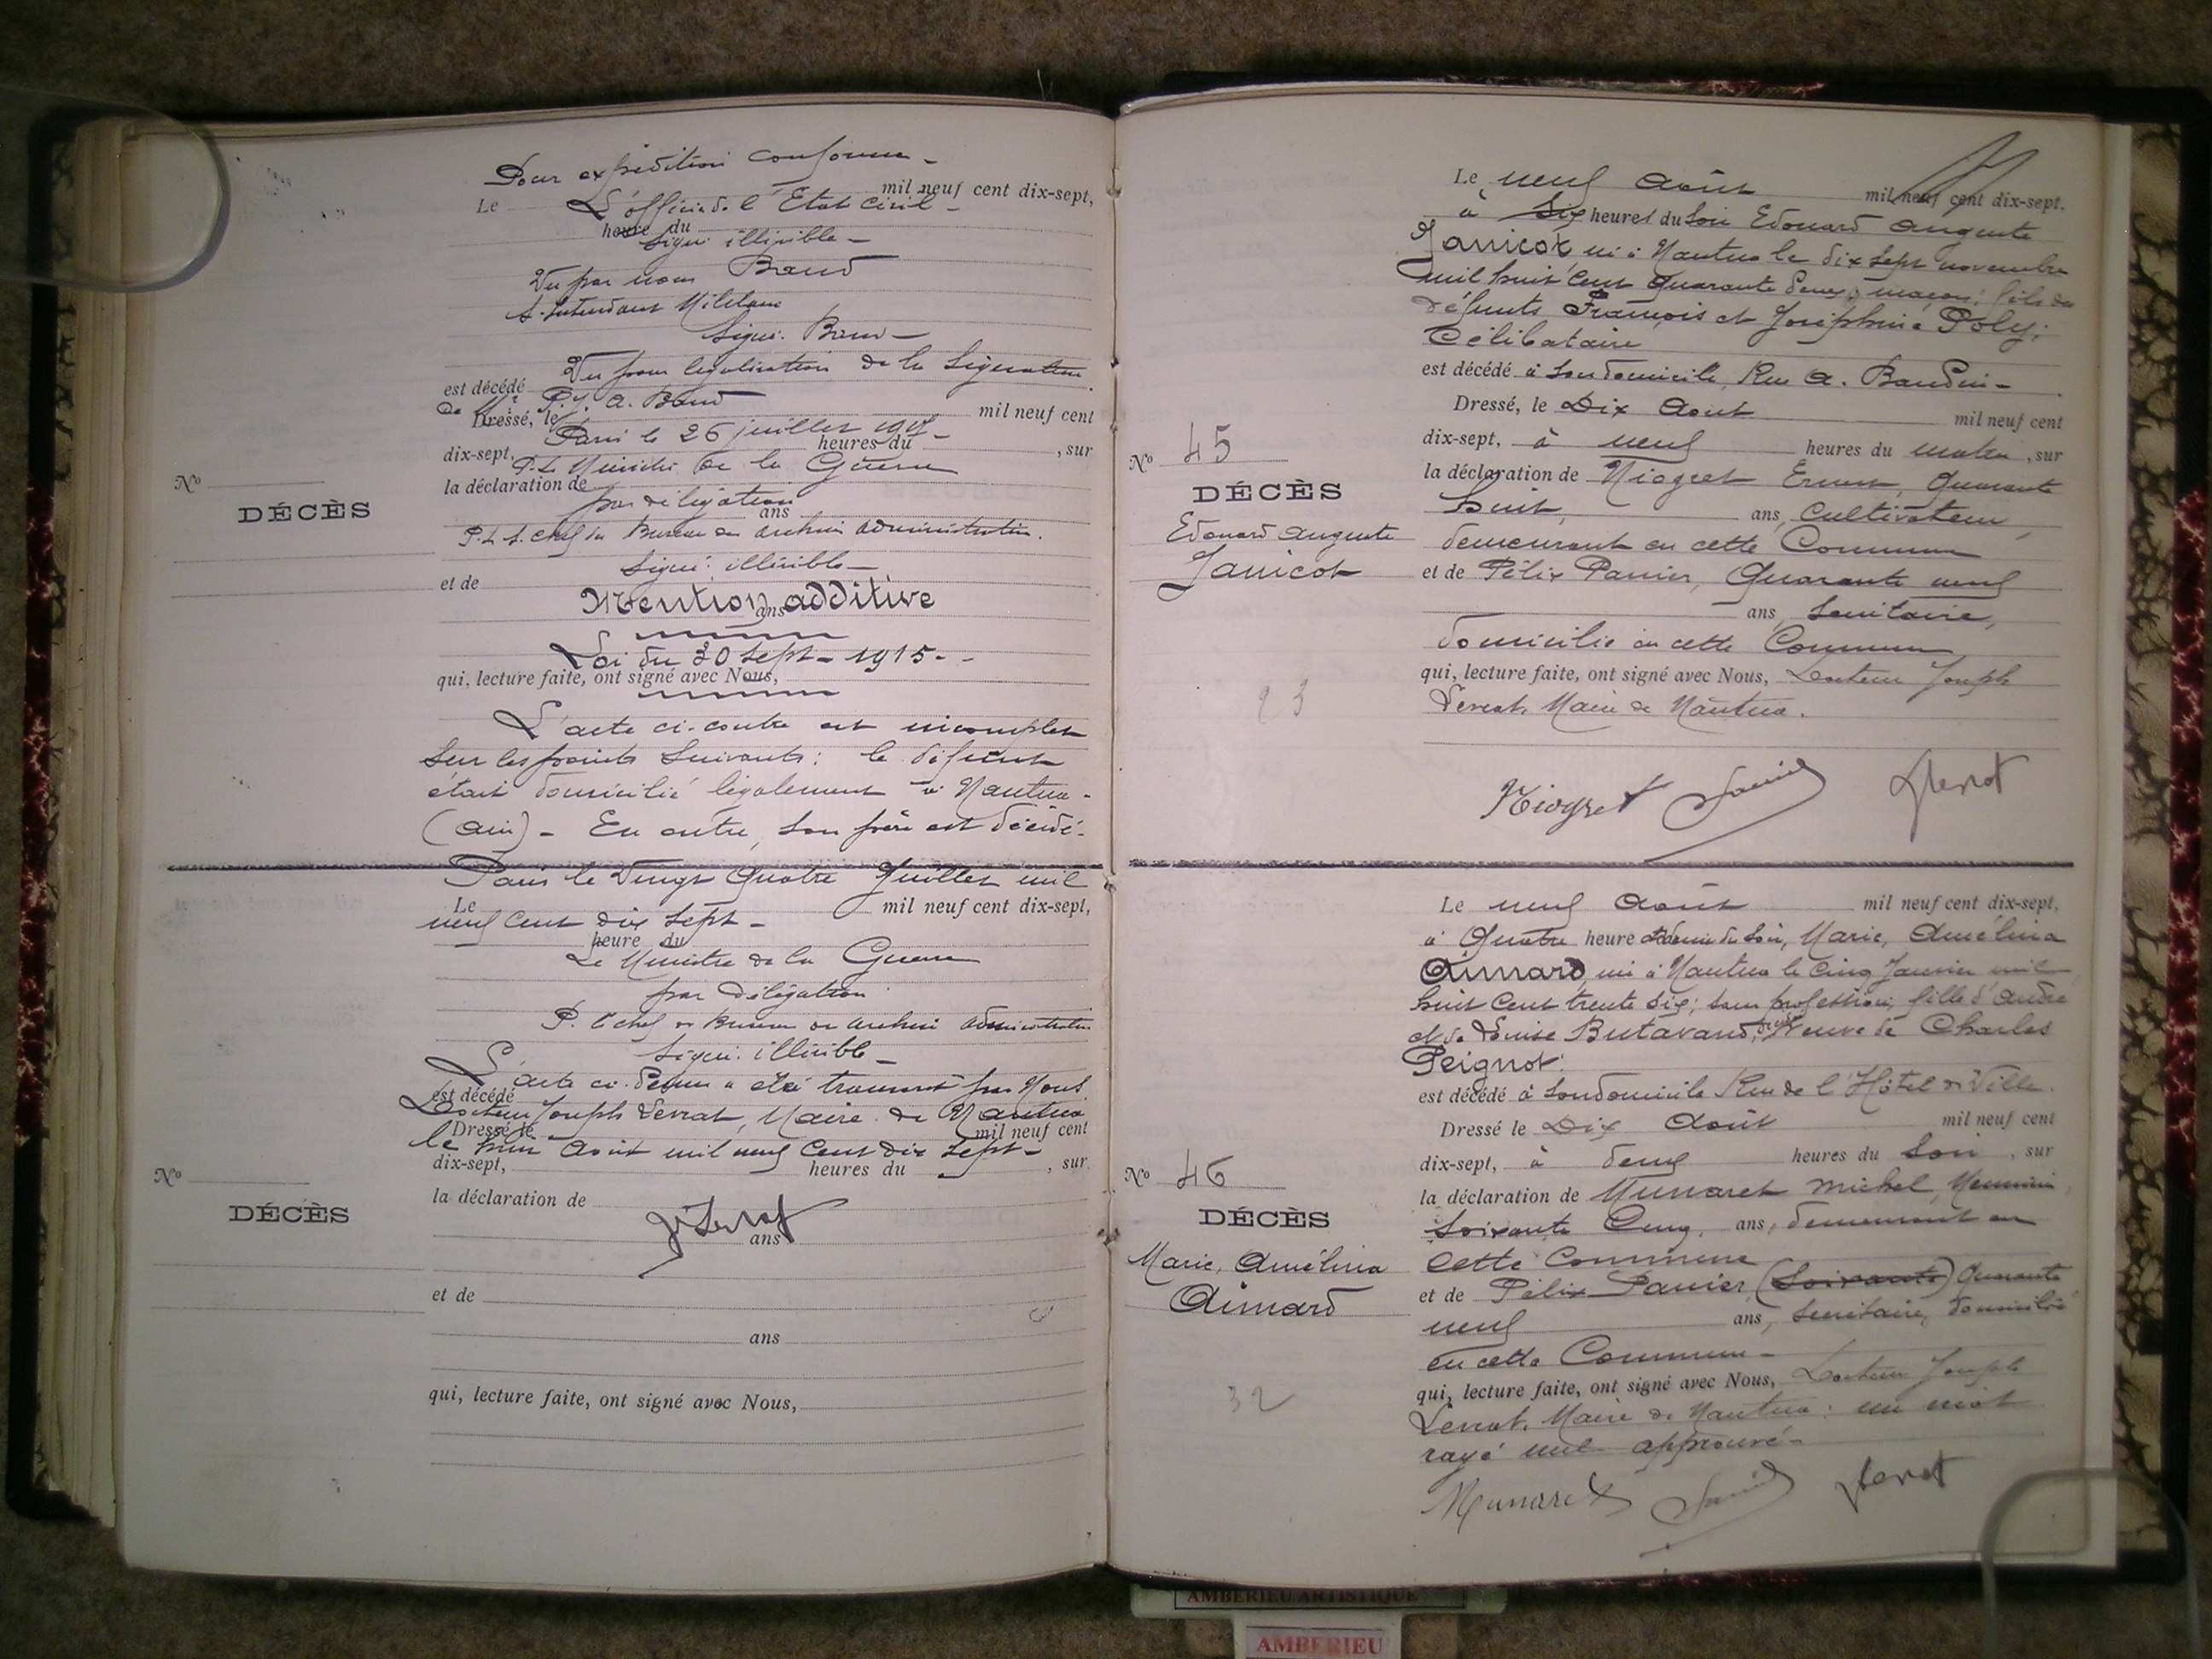 Pour expédition conforme -
Le L'officier de l'Etat Civil - mil neuf cent dix-sept,
heure du
Signé illisible -
Vu par nous Braud
S. Intendant Militaire
Signé:
Vu pour légalisation de la Signature
est décédé
de Mr P. J. A.
Dressé, le mil neuf cent
Paris le 26 juillet 1917 -
dix-sept, heures du , sur
P. Le Ministre de la Guerre
la déclaration de
par délégation
ans
P. L. S. Chef du Bureau des archives administratives.
Signé: illisible -
et de
Mention additive
ans
Loi du 30 Sept - 1915 - -
qui, lecture faite, ont signé avec Nous,
L'acte ci-contre est incomplet
Sur les points Suivants: le défunt
était domicilié légalement à Nantua -
(Ain) - En outre, son père est décédé -
Paris le Vingt Quatre Juillet mil
Le mil neuf cent dix-sept,
neuf cent dix Sept -
heure du
Le Ministre de la Guerre
par Délégation
P. le chef du Bureau des archives administratives
Signé: illisible -
L'acte ci-dessus a été transcrit par Nous
est décédé
Docteur Joseph Levrat, Maire de Nantua
Dressé le mil neuf cent
le huit Août mil neuf cent dix Sept -
dix-sept, heures du , sur
la déclaration de
J. Levrat
ans
et de
ans
qui, lecture faite, ont signé avec Nous,
No
DÉCÈS
No
DÉCÈS
Le neuf Août mil neuf cent dix-sept.
à Six heures du Soir Edouard Auguste
Janicot né à Nantua le dix Sept novembre
mil huit cent quarante deux, maçon; fils de
défunts François et Joséphine Poly;
Célibataire
est décédé à son domicile, Rue A. Baudin -
Dressé, le Dix Août mil neuf cent
dix-sept, à neuf heures du matin, sur
la déclaration de Niogret Ernest, Quarante
huit, ans, Cultivateur,
demeurant en cette Commune
et de Félix Panier, Quarante neuf
ans, Secrétaire,
domicilié en cette Commune
qui, lecture faite, ont signé avec Nous, Docteur Joseph
Levrat, Maire de Nantua.
Niogret Panier JLevrat
No 45
DÉCÈS
Edouard Auguste
Janicot
23
Le neuf Août mil neuf cent dix-sept,
à Quatre heure et demie du Soir, Marie, Amélina
Aimard, né à Nantua le Cinq Janvier mil
huit cent trente six; sans profession, fille d'André
et de Louise Butavand, Veuve de Charles
Peignot:
est décédé à son domicile Rue de l'Hôtel de Ville.
Dressé le Dix Août mil neuf cent
dix-sept, à deux heures du Soir, sur
la déclaration de Munaret Michel, Menuisier,
Soixante Cinq, ans, demeurant en
cette Commune
et de Félix Panier (Soixante) Quarante
neuf ans, Secrétaire, domicilié
en cette Commune -
qui, lecture faite, ont signé avec Nous, Docteur Joseph
Levrat, Maire de Nantua: un mot
rayé nul approuvé -
Munaret Panier JLevrat
No 46
DÉCÈS
Marie, Amélina
Aimard
32
AMBERIEU ARTISTIQUE
AMBERIEU